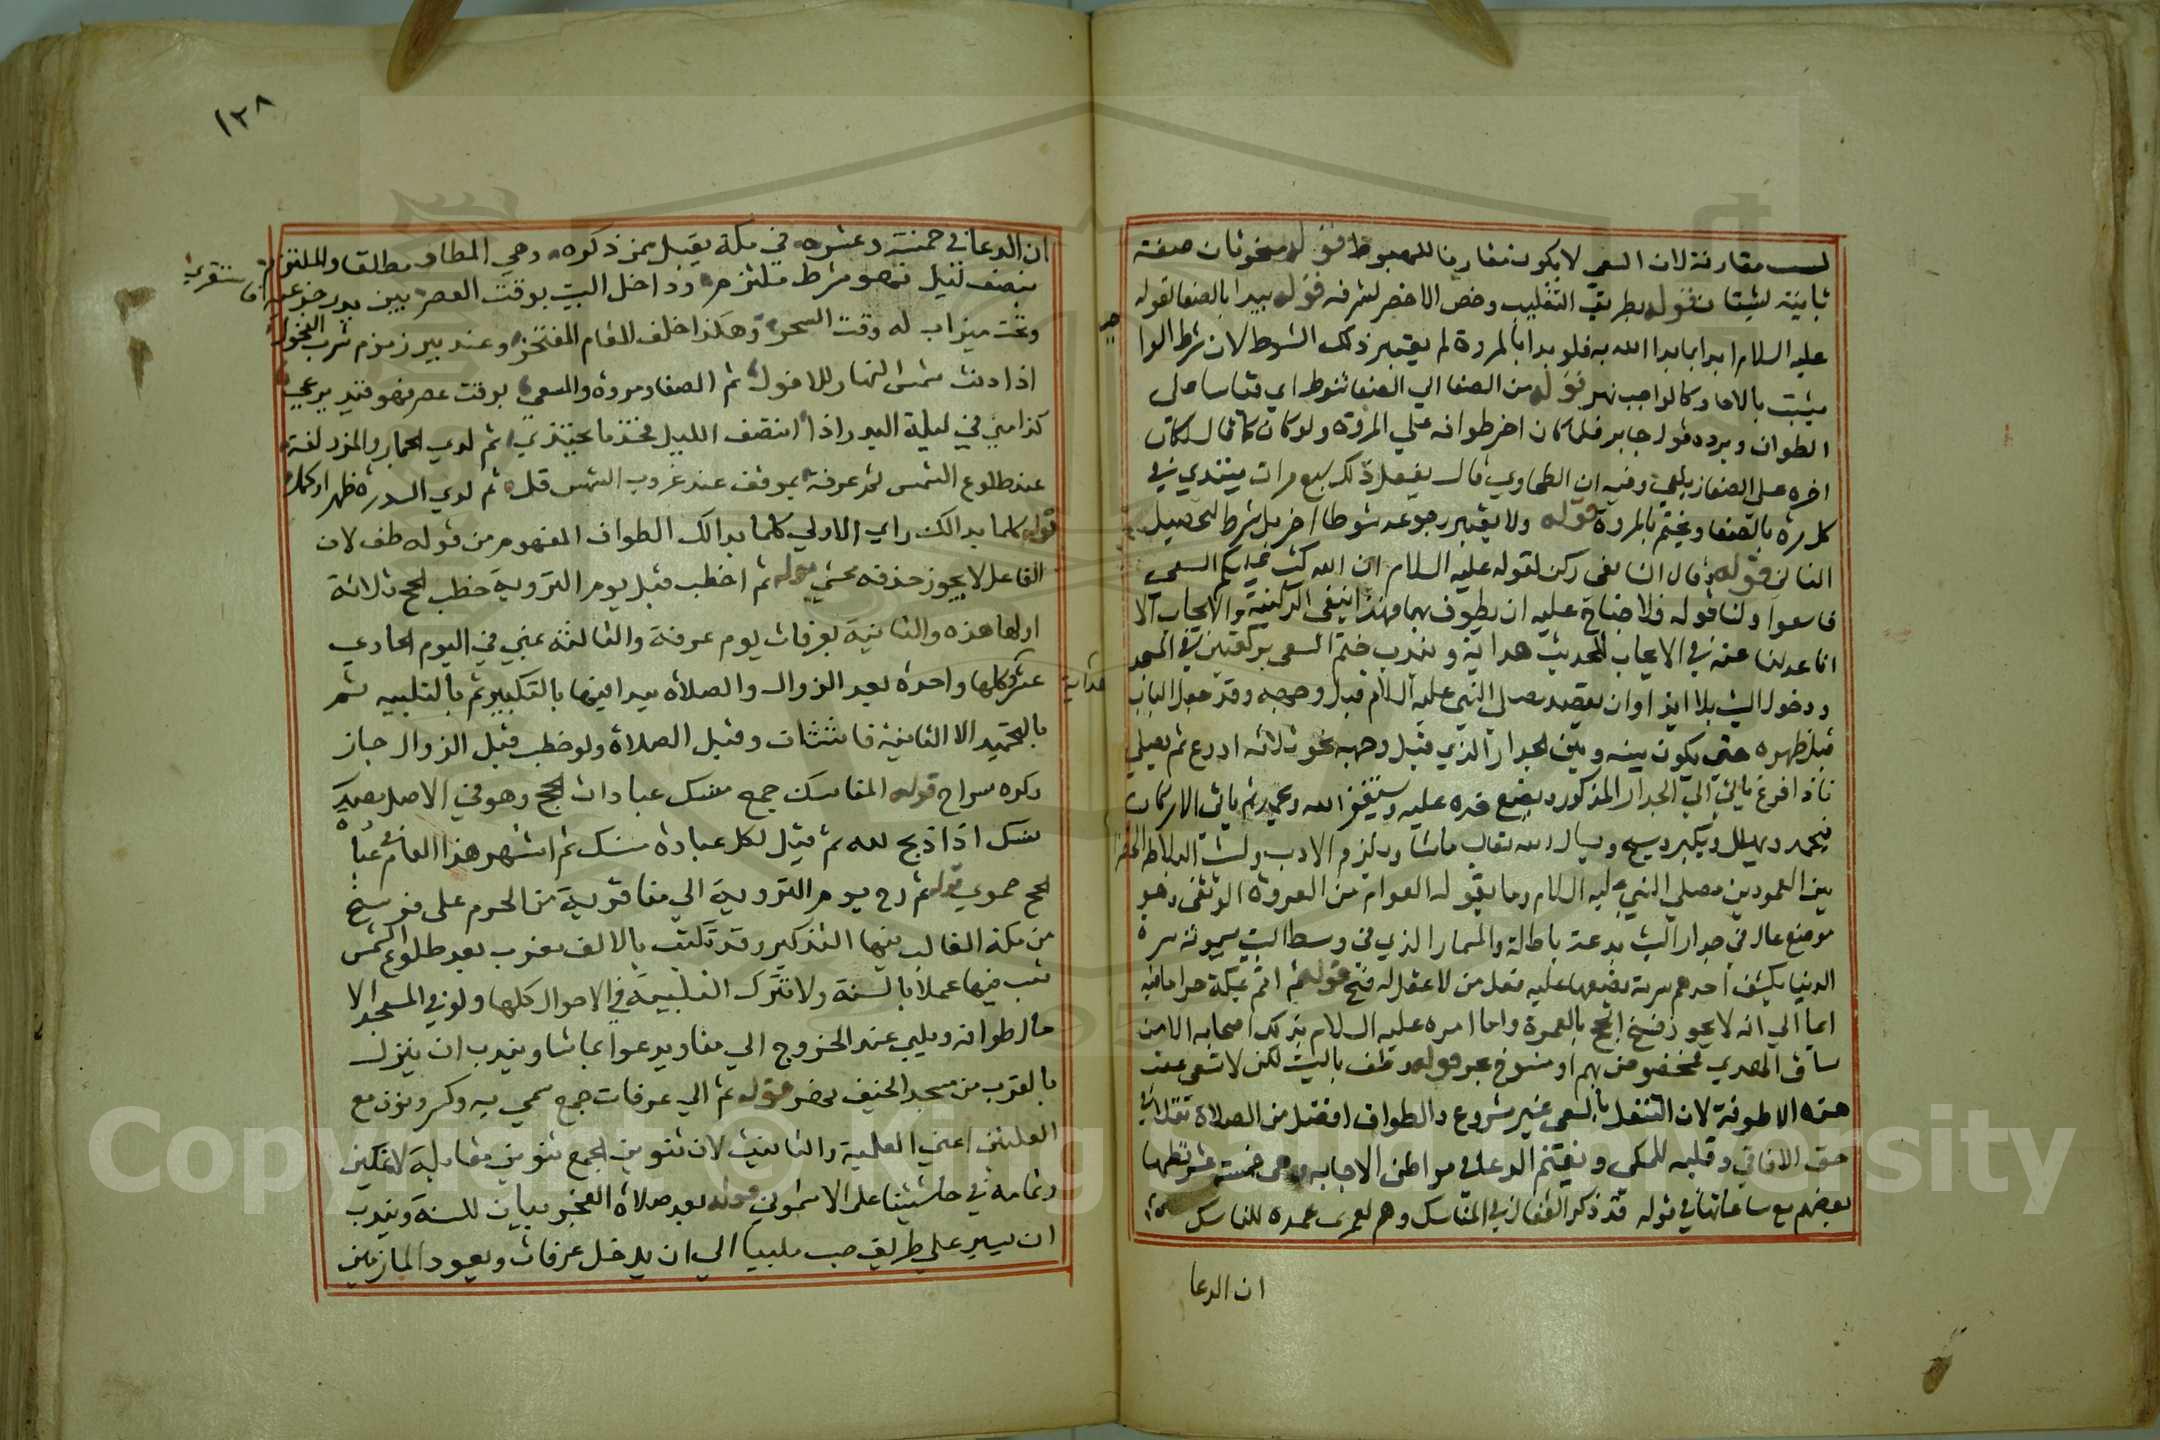 ليست مقارنة لان السعي لا يكون مقارنا للهبوط قوله منحوتان صفة
ثانية لشيئان قوله بطريق التغليب وخص الاخضر لشرفه قوله يبدا بالصفا لقوله
عليه السلام ابدا بما بدا الله به فلو بدا بالمروة لم يعتبر ذلك الشوط لان شرط الوا
يثبت بالاحاد كالواجب نهر قوله من الصفا الي الصفا شوط اي قياسا على
الطواف ويرده قول جابر فلما كان اخر طوافه علي المروة ولو كان كما قال لكان
اخره على الصفا زيلعي وفيه ان الطحاوي قال يفعل ذلك سبع مرات يبتدي في
كل مرة بالصفا ويختم بالمروة قوله ولا يعتبر رجوعه شوطا اخر بل شرط لتحصيل
الثاني قوله وقال الشافعي ركن لقوله عليه السلام ان الله كتب عليكم السعي
فاسعوا ولنا قوله فلا جناح عليه ان يطوف بهما فهذا ينفي الركنية والايجاب الا
انا عدلنا عنه في الايجاب للحديث هداية وندب ختم السعي بركعتين في المسجد
ودخول البيت بلا ايذا وان يقصد مصلى النبي عليه السلام قبل وجهه وقد جعل الباب
قبل ظهره حتي يكون بينه وبين الجدار الذي قبل وجهه نحو ثلاثة اذرع ثم يصلي
فاذا فرغ ياتي الي الجدار المذكور ويضع خده عليه ويستغفر الله ويحمد ثم ياتي الاركان
فيحمد ويهلل ويكبر ويسبح ويسال الله تعالى ماشا ويلزم الادب وليست البلاطة الخضرا
بين العمودين مصلى النبي عليه السلام وما يقوله العوام من العروة الوثقى وهو
موضع عال في جدار البيت بدعة باطلة والمسمار الذي في وسط البيت يسمونه سرة
الدنيا يكشف احدهم سرته ويضعها عليه فعل من لا عقل له فتح قوله ثم اقم بمكة حراما فيه
ايما الي انه لا يجوز فسخ الحج بالعمرة واما امره عليه السلام بذلك اصحابه الا من
ساق الهدي فمخصوص بهم او منسوخ بحر قوله وطف بالبيت لكن لا تسعى عقب
هذه الاطوفة لان التنفل بالسعي غير مشروع والطواف افضل من الصلاة نفلا في
حق الافاقي وقلبه للمكي ويغتنم الدعا في مواطن الاجابة وهي خمسة عشر نظمها
بعضهم مع ساعاتها في قوله قد ذكر النقاش في المناسك وهو لعمري عمدة للناسك
ان الدعا
١٣٨
ان الدعا في خمسة وعشره في مكة يقبل ممن ذكره وهي المطاف مطلقا والملتزم
بنصف ليل فهو شرط ملتزم وداخل البيت بوقت العصر بين يدي جزعيه فاستقري
وتحت ميزاب له وقت السحر وهكذا خلف المقام المفتخر وعند بير زمزم شرب الفحول
اذا دنت شمس النهار للافول ثم الصفا ومروة والمسعى بوقت عصر فهو قيد يرعى
كذا منى في ليلة البدر اذا انتصف الليل فخذ ما يحتذى ثم لدي الجمار والمزدلفة
عند طلوع الشمس ثم عرفة بموقف عند غروب الشمس قل ثم لدي السدرة ظهرا وكمل
قوله كلما بدا لك راي الاولي كلما بدا لك الطواف المفهوم من قوله طف لان
الفاعل لا يجوز حذفه محشي قوله ثم اخطب قبل يوم التروية خطب الحج ثلاثة
اولها هذه والثانية بعرفات يوم عرفة والثالثة بمنى في اليوم الحادي
عشر وكلها واحدة بعد الزوال والصلاة يبدا فيها بالتكبير ثم بالتلبية ثم
بالتحميد الا الثانية فاثنتان وقبل الصلاة ولو خطب قبل الزوال جاز
وكره سراج قوله المناسك جمع منسك عبادات الحج وهو في الاصل مصدر
نسك اذا ذبح لله ثم قيل لكل عبادة نسك ثم اشتهر هذا العام في عبادة
الحج حموي قوله ثم رح يوم التروية الي منا قرية من الحرم على فرسخ
من مكة الغالب فيها التذكير وقد تكتب بالالف بعد طلوع الشمس
ثبت فيها عملا بالسنة ولا تترك التلبية في الاحوال كلها ولو في المسجد الا
حال طوافه ويلبي عند الخروج الي منا ويدعوا بما شا ويندب ان ينزل
بالقرب من مسجد الخيف قوله ثم الي عرفات جمع سمي به وكسر ونون مع
العلتين اعني العلمية والتانيث لان تنوين الجمع تنوين مقابلة لا تمكين
وتمامه في حاشيتنا على الاشموني قوله بعد صلاة الفجر بيان للسنة ويندب
ان يسير علي طريق ضب ملبيا الي ان يدخل عرفات ويعود المازمين